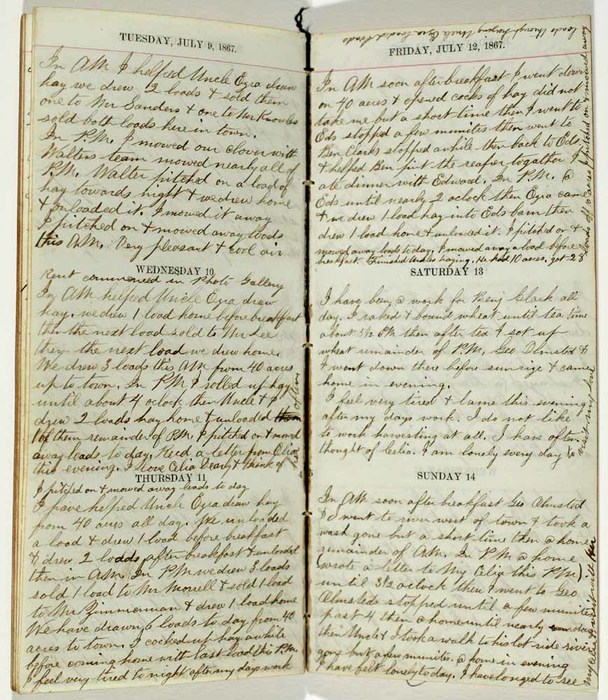 TUESDAY, JULY 9, 1867.
In AM I helped Uncle Ezra draw
hay we drew 2 loads & sold them
one to Mr Sanders & one to Mr Knowles
sold both loads here in town.
In P.M. I mowed our clover with
Walters team mowed nearly all of
P.M. Walter pitched on a load of
hay towards night & we drew home
& unloaded it. I mowed it away
I pitched on & mowed away loads
this A.M. Very pleasant & cool air
WEDNESDAY 10
Kent commenced in Photo Gallery
In AM helped Uncle Ezra draw
hay. we drew 1 load home before breakfast
then the next load sold to Mr Lee
then the next load we drew home.
We drew 3 loads this AM from 40 acres
up to town. In P.M. I rolled up hay
until about 4 oclock then Uncle & I
drew 2 loads hay home & unloaded
1 of them remainder of P.M. I pitched on & mowed
away loads to day. Recd a letter from Celia
this evening. I love Celia Dearly & think of
her often
THURSDAY 11
I pitched on & mowed away loads to day
I have helped Uncle Ezra draw hay
from 40 acres all day. We unloaded
a load & drew 1 load before breakfast
& drew 2 loads after breakfast & unloaded
them in A.M. In P.M. we drew 3 loads
sold 1 load to Mr Morell & sold 1 load
to Mr Zimmerman & drew 1 load home
We have drawn 6 loads to day from 40
acres to town. I cocked up hay awhile
before coming home with last load this P.M.
I feel very tired to night after my days work
FRIDAY, JULY 12, 1867.
In A.M. soon after breakfast I went down
on 40 acres & opened cocks of hay did not
take me but a short time then I went to
Eds stopped a few minutes then went to
Ben Clarks stopped awhile then back to Eds
& helped Ben put the reaper together I
ate dinner with Edward. In P.M. @
Eds until nearly 2 oclock then Ezra came
& we drew 1 load hay into Eds barn then
drew 1 load home & unloaded it. I pitched on &
mowed away loads to day. I mowed away a load before
breakfast. finished Uncles haying. He had 10 acres, got 23
loads off 10 acres I pitched on & mowed away
loads though
SATURDAY 13
I have been @ work for Benj Clark all
day. I raked & bound wheat until tea time
about 5½ P.M. then after tea I set up
wheat remainder of P.M. Geo Olmsted &
I went down there before sunrise & came
home in evening.
I feel very tired & lame this evening
after my days work. I do not like
to work harvesting at all. I have often
thought of Celia. I am lonely every day to
visit my love
SUNDAY 14
In AM. soon after breakfast Geo Olmsted
& I went to river west of town & took a
wash gone but a short time then @ home
remainder of A.M. In P.M. @ home
(wrote a letter to My Celia this P.M.)
until 3½ oclock then I went to Geo
Olmsteds stopped until a few minutes
past 4 then @ home until nearly
then Uncle & I took a walk to his lot side river
gone but a few minutes. @ home in evening
I have felt lonely to day. I have longed to see
my Celia & visit with her